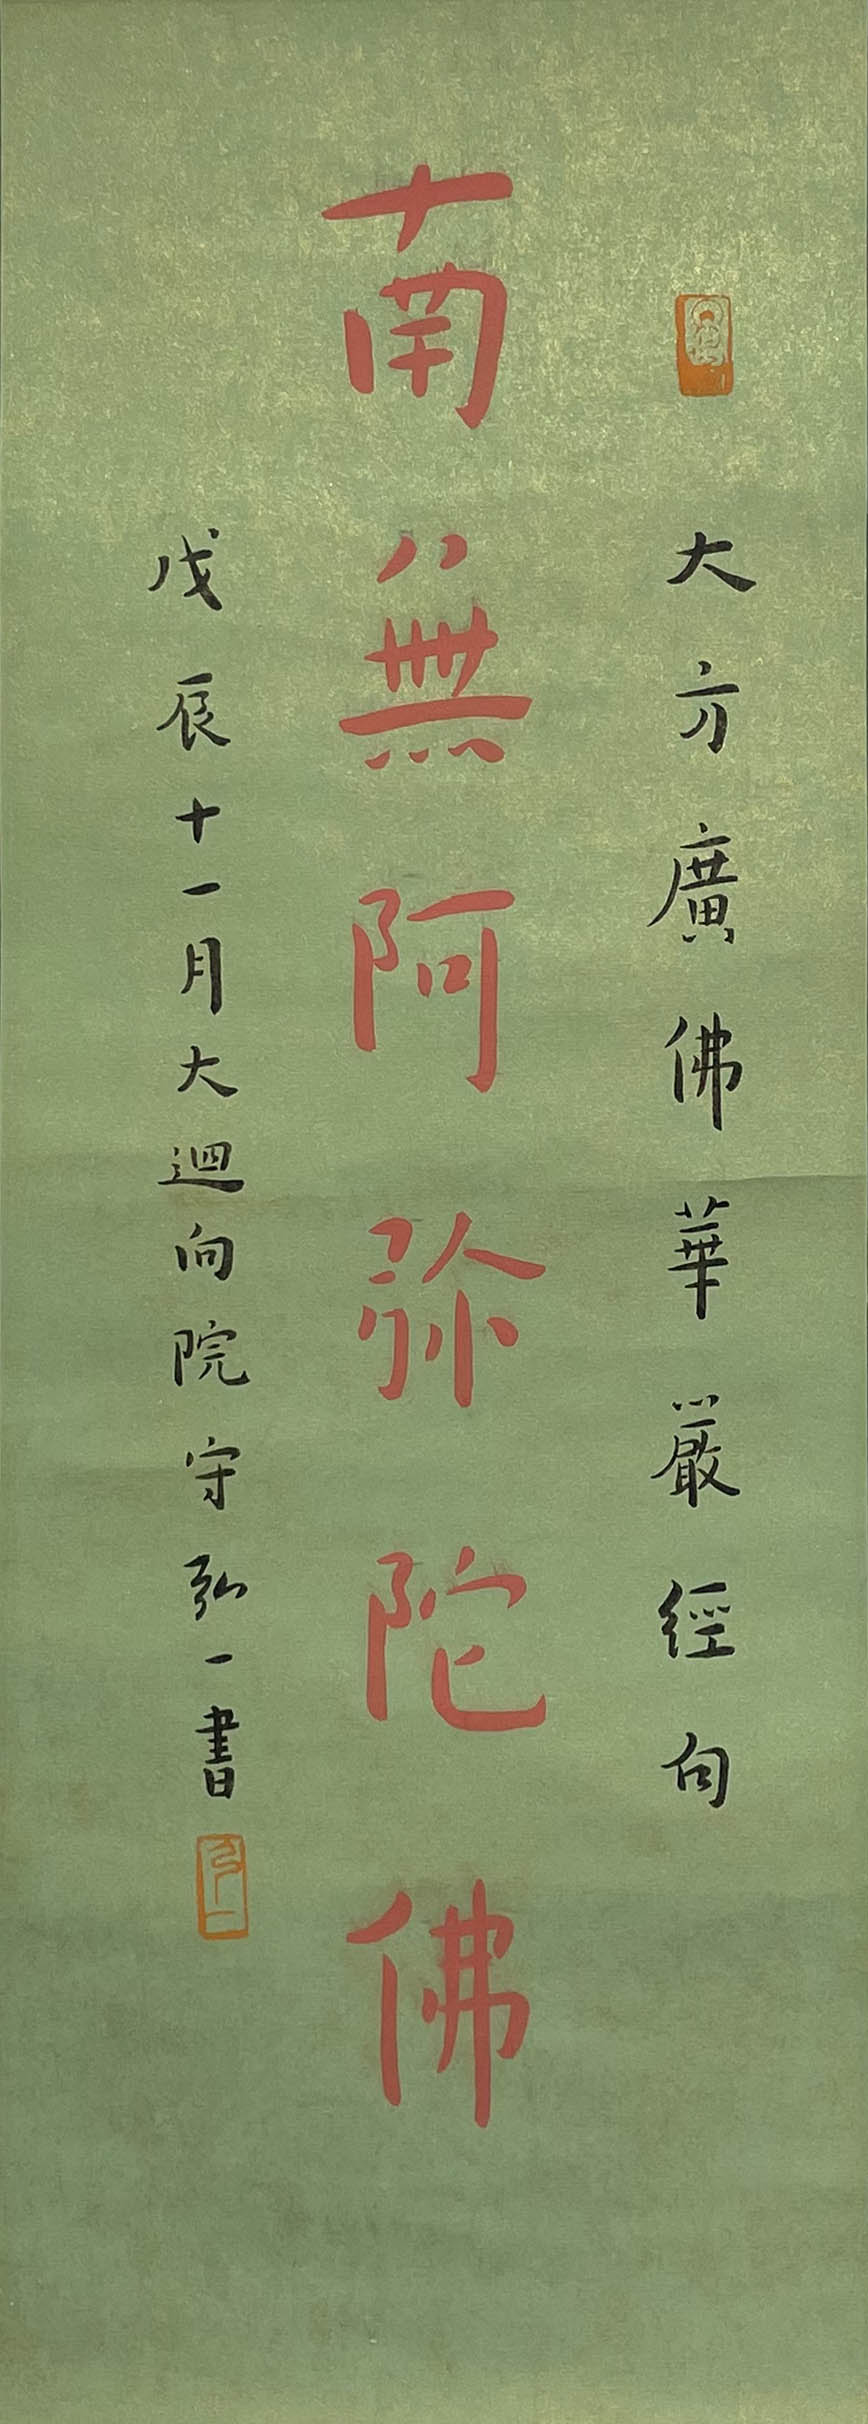 大方廣佛華嚴經句
南無阿弥陀佛
戊辰十一月大迴向院守弘一書